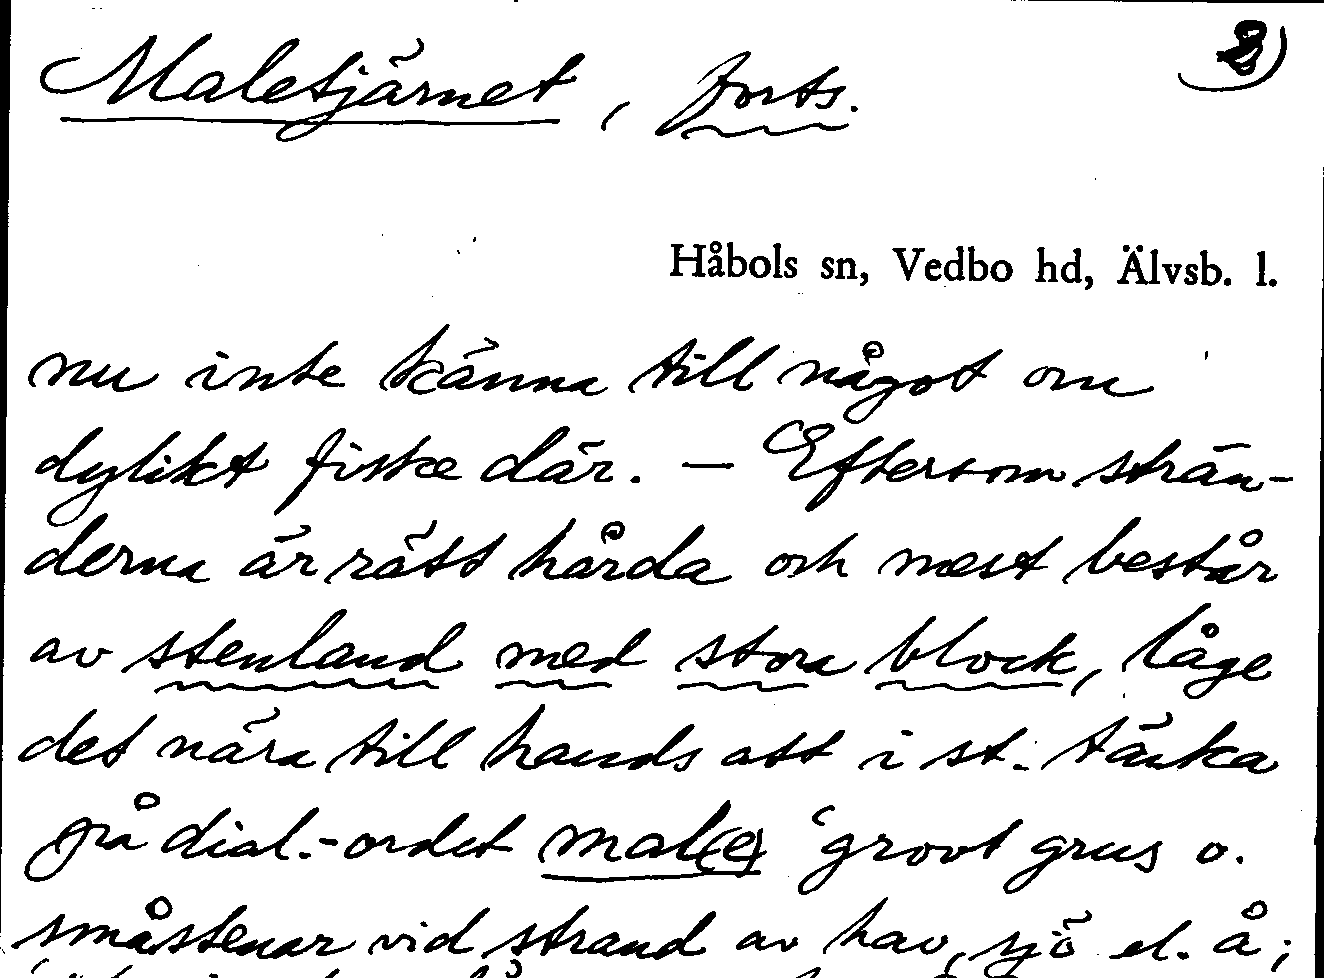 Maletjärnet, forts.
Håbols sn, Vedbo hd, Älvsb. l.
nu inte känna till något om
dylikt fiske där. — Eftersom strän-
derna är rätt hårda och mest består
av stenland med stora block, låge
det nära till hands att i st. tänka
på dial.-ordet mal(e) 'grovt grus o.
småstenar vid strand av hav, sjö el. å;